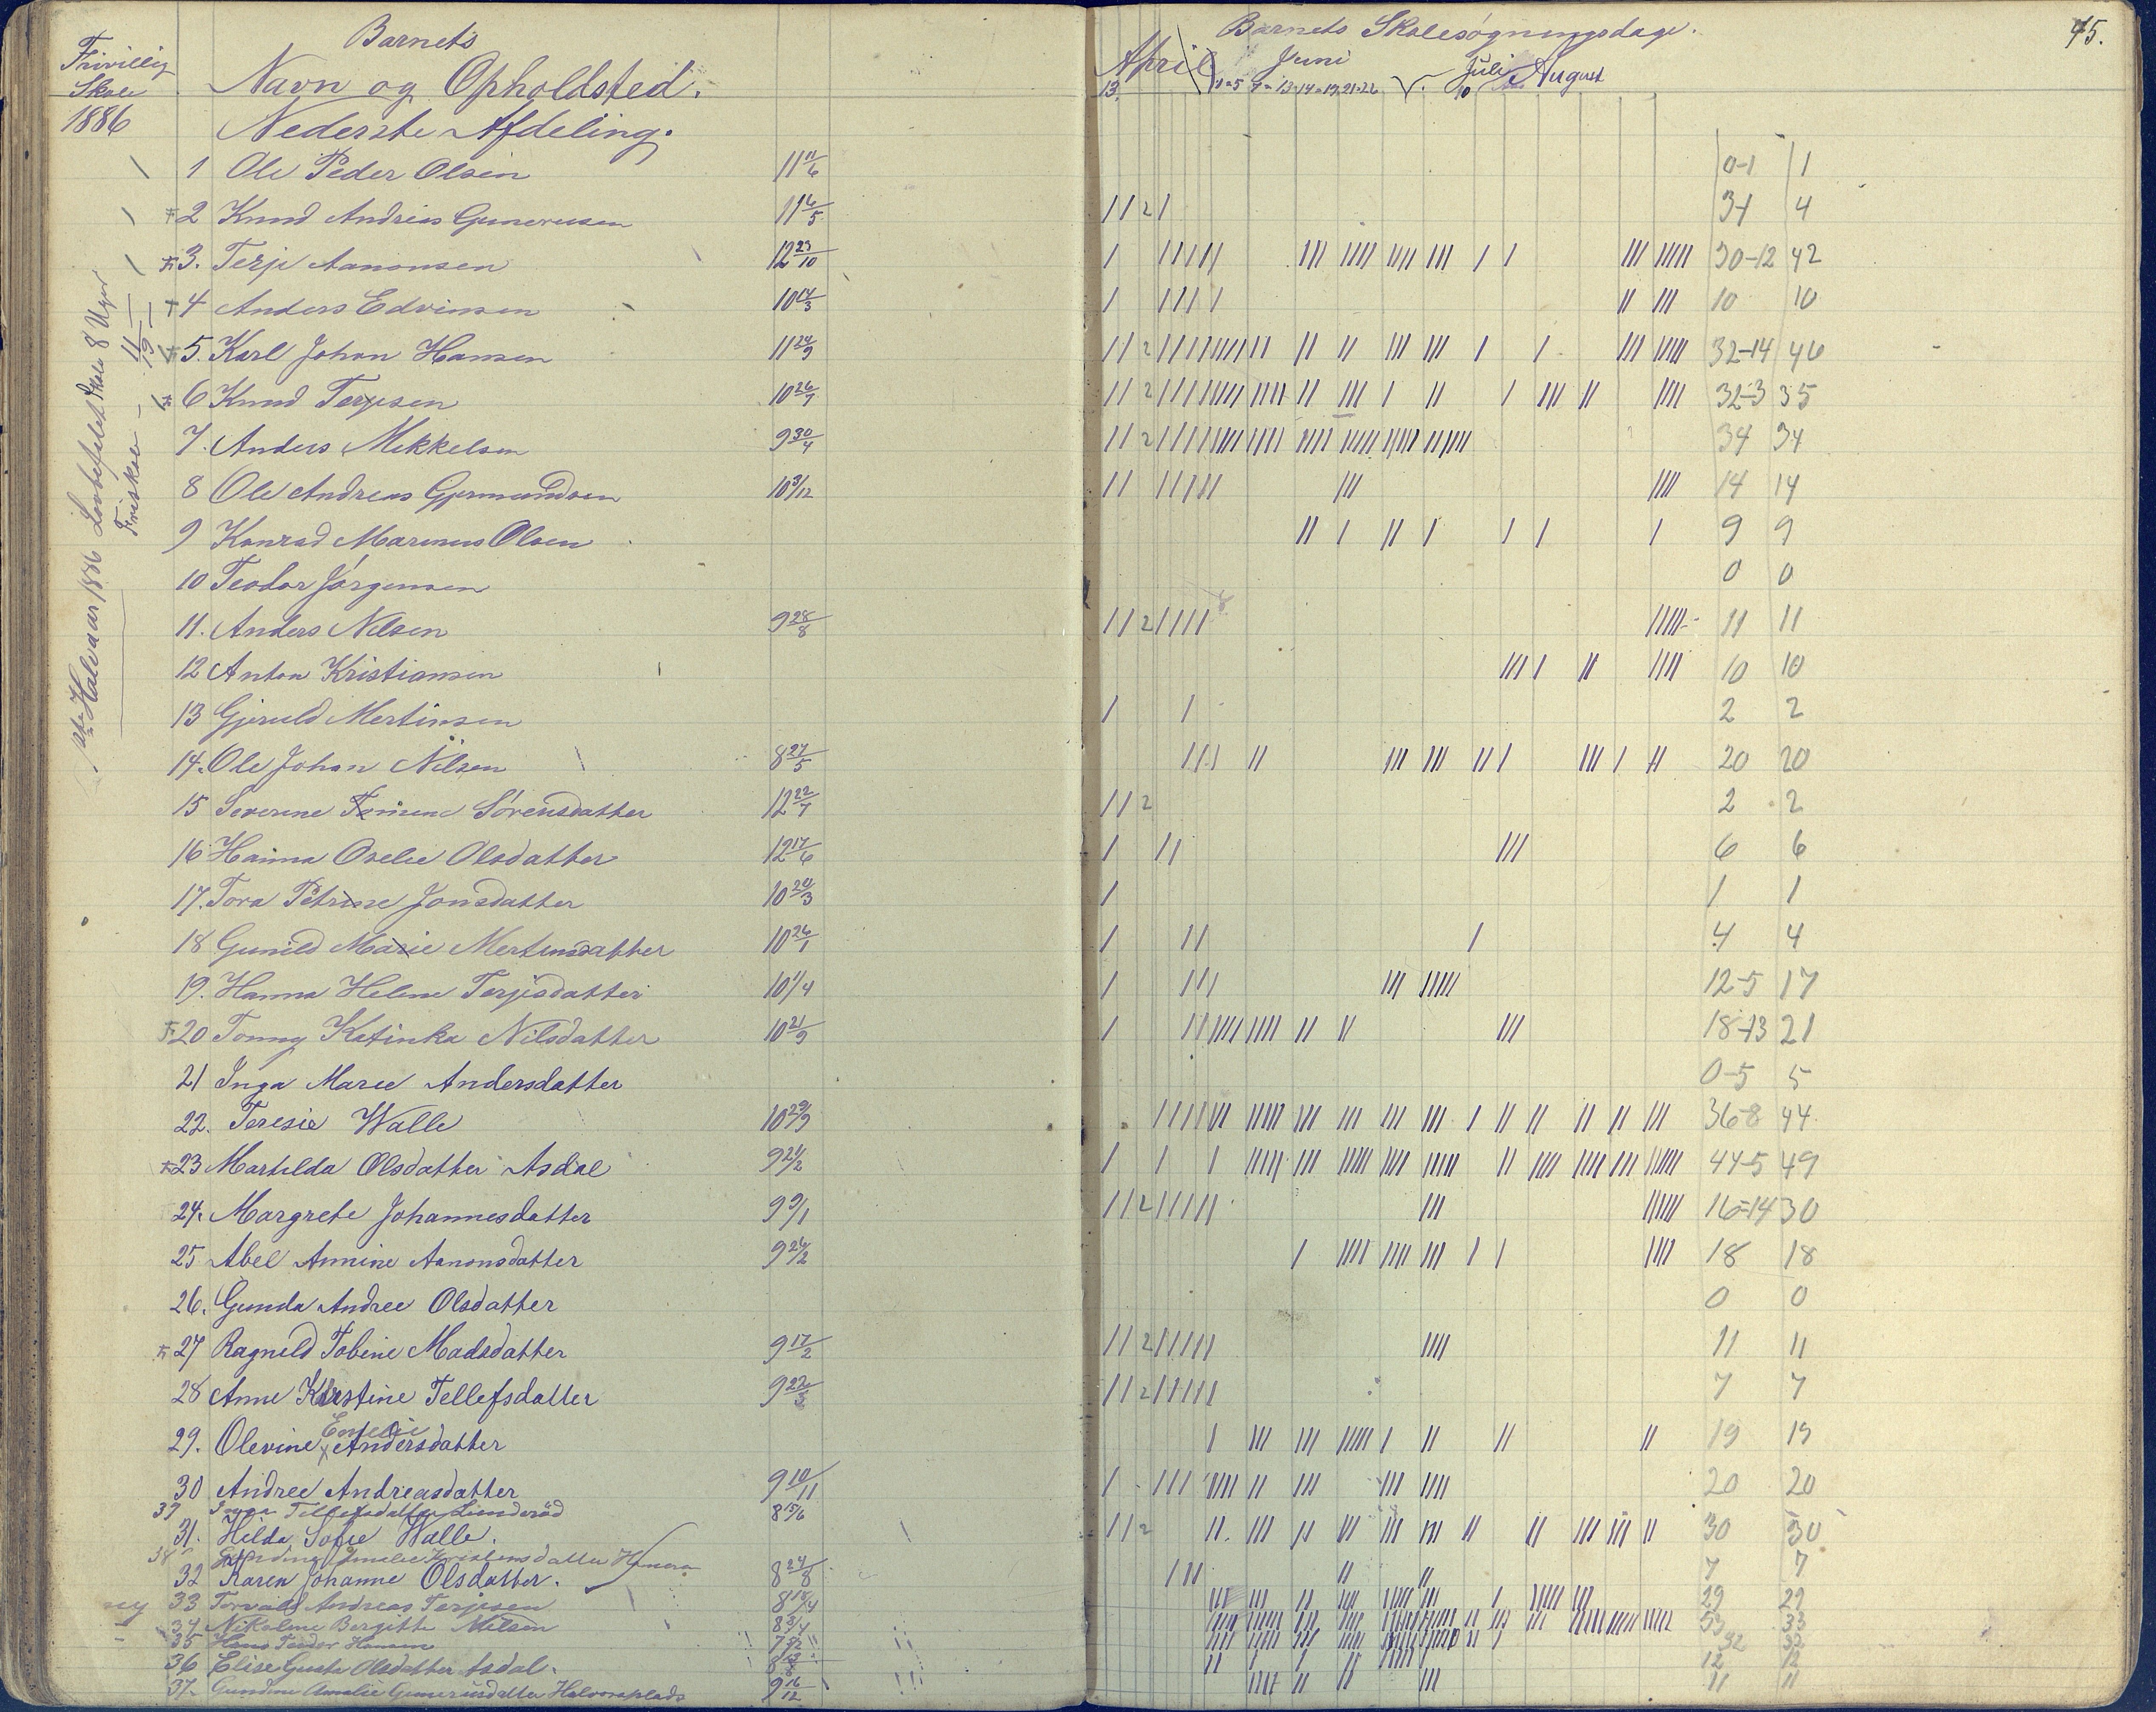 Frivillig Skole 1886
Barnets
Navn og Opholdsted.
Nederste Afdeling.
Barnets Skolesøgningsdage.
45.
April Juni Juli August
13. 10
1ste Halvaar 1886 Lovbefalet Skole 8 Uger
Friskole
1 Ole Peder Olsen 11 11/6 0-1 1
2 Knud Andreas Gunerusen 11 6/5 // 2 / 3-1 4
3. Terje Aanonsen 12 23/10 / ///// /// //// //// /// / / /// //// 30-12 42
4 Anders Edvinsen 10 14/3 / //// // /// 10 10
5. Karl Johan Hansen 11 24/9 32-14 46
6 Knud Terjesen 10 26/9 32-3 35
7. Anders Mikkelsen 9 30/4 34 34
8 Ole Andreas Gjermundsen 10 3/12 // ///// /// //// 14 14
9 Konrad Marinius Olsen // / // / / / / 9 9
10 Teodor Jørgensen 0 0
11. Anders Nilsen 9 28/8 // 2 //// 11 11
12 Anton Kristiansen /// / // //// 10 10
13 Gjeruld Mertinsen / / 2 2
14. Ole Johan Nilsen 8 27/5 /// // /// /// // / /// / // 20 20
15 Severine Tomine Sørensdatter 12 22/7 // 2 2 2
16 Hanna Oselie Olsdatter 12 17/6 / // /// 6 6
17. Tora Petrine Jonsdatter 10 20/3 / 1 1
18 Gunild Marie Mertinsdatter 10 26/1 / // / 4 4
19. Hanna Helene Terjesdatter 10 1/4 / /// /// ///// 12-5 17
20 Tonny Katinka Nilsdatter 10 21/9 18-13 21
21 Inga Marie Andersdatter 0-5 5
22. Teresie Walle 10 29/9 36-8 44
23 Martilda Olsdatter Asdal 9 21/2 44-5 49
24. Margrete Johannesdatter 9 9/1 16-14 30
25 Abel Annine Aanonsdatter 9 26/2 / //// //// /// / / //// 18 18
26. Gunda Andree Olsdatter 0 0
27 Ragnild Tobine Madsdatter 9 17/2 11 11
28 Anne Kirstine Tellefsdatter 9 22/3 7 7
Emelie
29. Olevine Andersdatter 19 19
30 Andree Andreasdatter 9 10/11 20 20
37 Inga Tellefsdatter Lunderød 8 15/6
31. Hilda Sofie Walle. 30 30
38 Amalie Kristensdatter
32 Karen Johanne Olsdatter. 8 24/8 /// // // 7 7
ny 33 Torvald Andreas Terjesen 29 29
34 Nikoline Bergitte Nilsen 8 3/4 53
35 Hans Teodor Hansen 32
36 Elise Gusta Olsdatter Asdal. 12 12
37. Gundine Amalie Gunerusdatter Halvorsplads 9 16/12 11 11